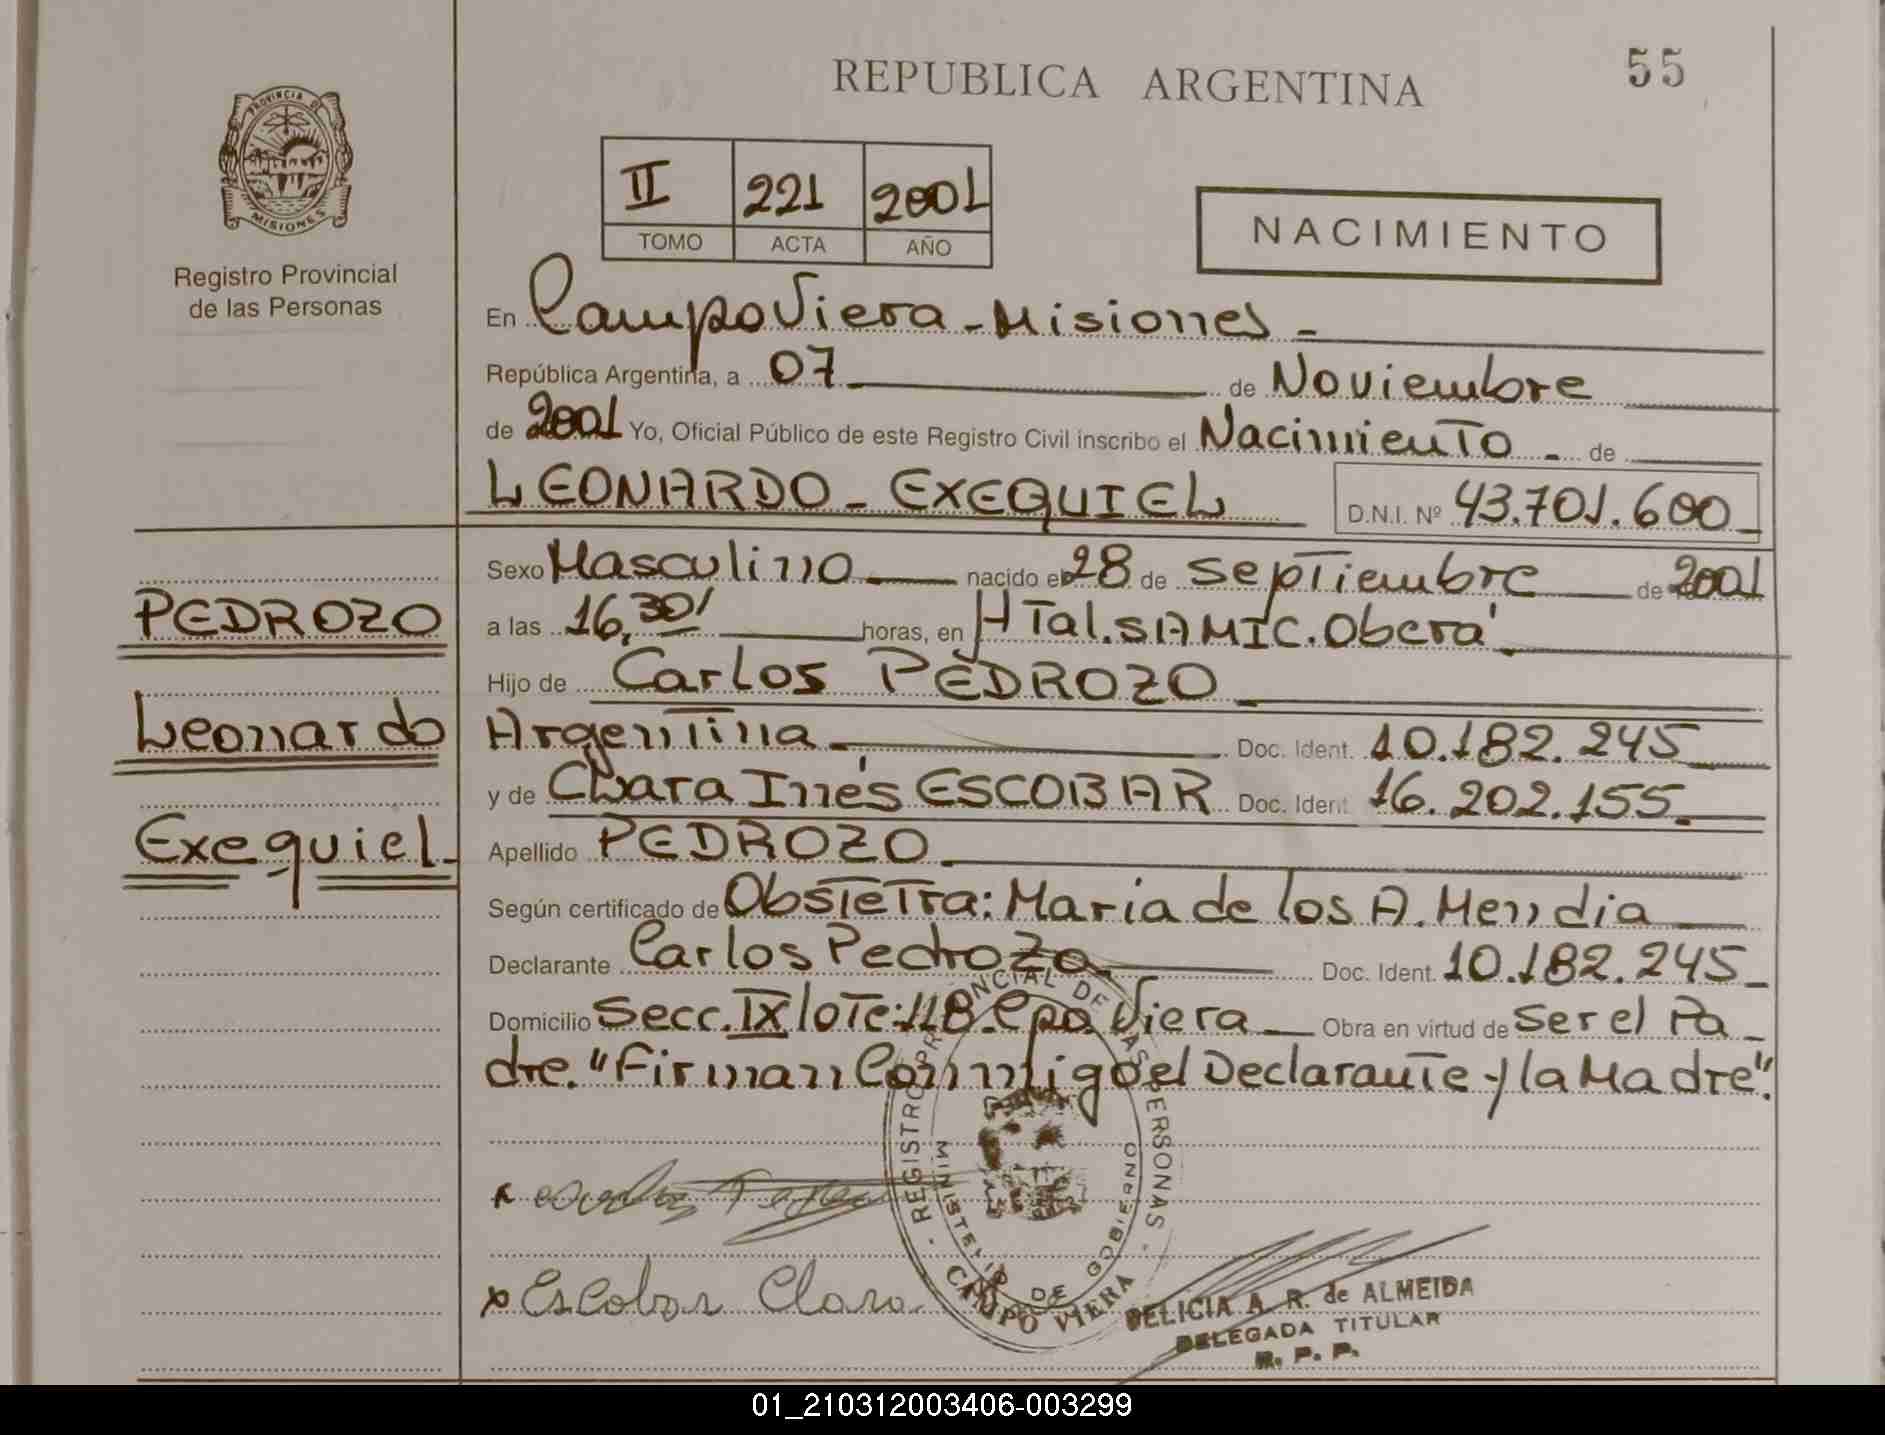 REPUBLICA ARGENTINA
55
PROVINCIA DE MISIONES
Registro Provincial
de las Personas
II 221 2001
TOMO ACTA AÑO
NACIMIENTO
En Campo Viera - Misiones -
República Argentina, a 07 de Noviembre
de 2001 Yo, Oficial Público de este Registro Civil inscribo el Nacimiento - de
LEONARDO - EXEQUIEL D.N.I. Nº 43.701.600
Sexo Masculino nacido el 28 de septiembre de 2001
PEDROZO
a las 16,30' horas, en HTal. SAMIC. Oberá
Hijo de Carlos PEDROZO
Leonardo
Argentina Doc. Ident. 10.182.245
y de Clara Inés ESCOBAR Doc. Ident. 16.202.155
Exequiel
Apellido PEDROZO
Según certificado de Obstetra: Maria de los A. Mendia
Declarante Carlos Pedrozo Doc. Ident. 10.182.245
Domicilio Secc. IX lote: 118. Cpo. Viera Obra en virtud de ser el Pa
dre. "Firman Conmigo el Declarante y la Madre".
REGISTRO PROVINCIAL DE LAS PERSONAS
MINISTERIO DE GOBIERNO
CAMPO VIERA
x Escobar Clara
DELICIA A. R. de ALMEIDA
DELEGADA TITULAR
R. P. P.
01_210312003406-003299